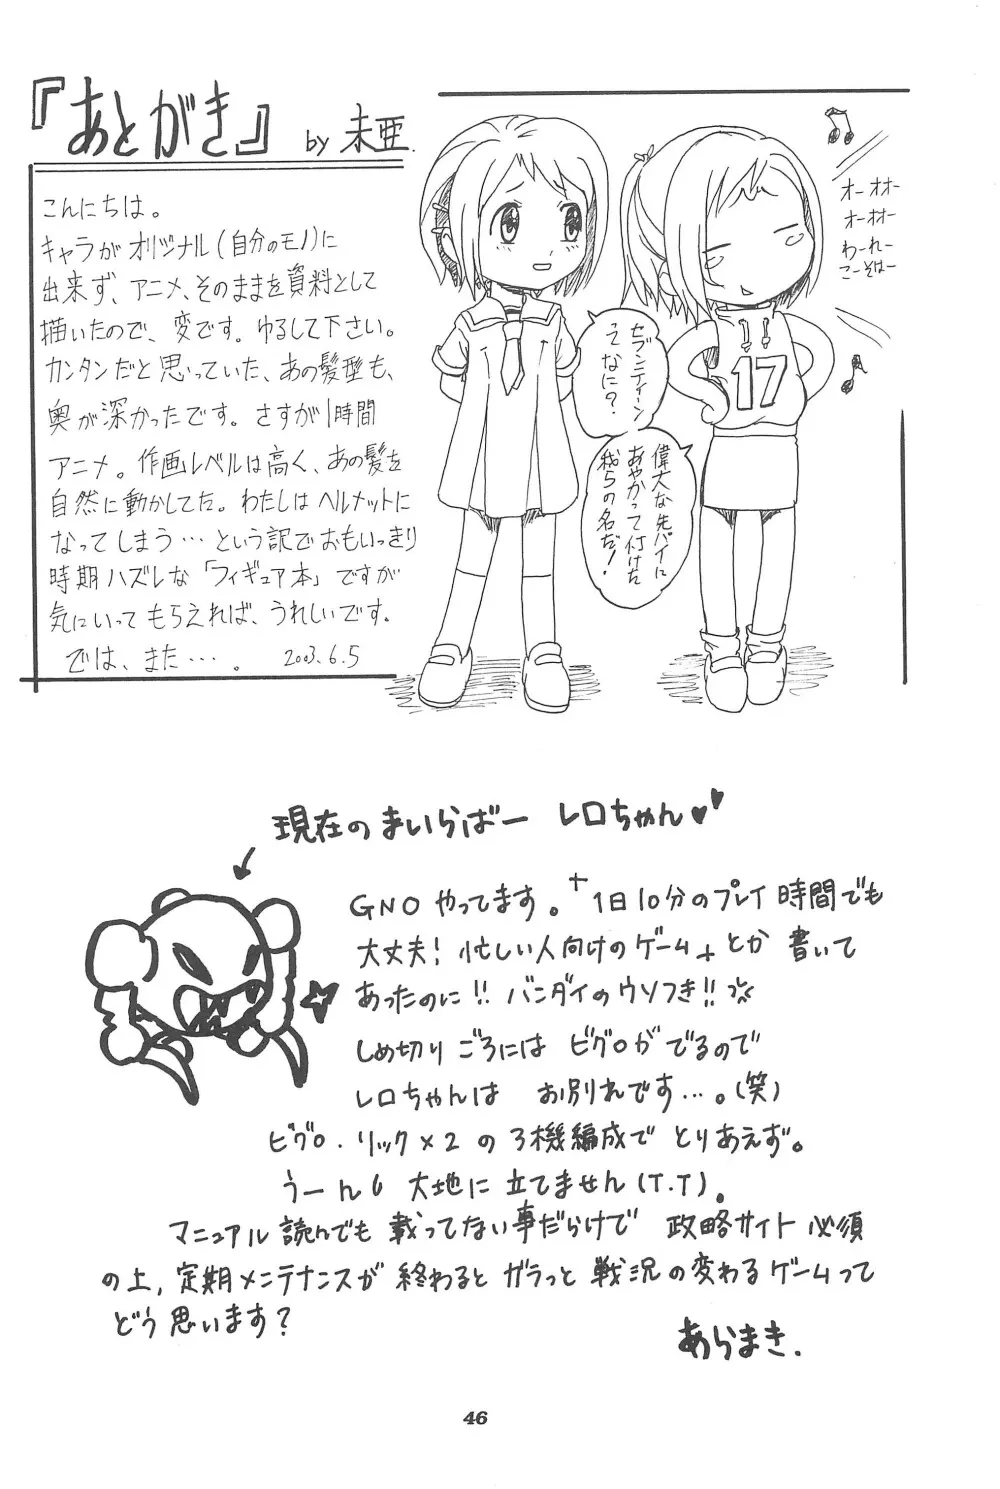 『あとがき』 by 未亜.
こんにちは。
キャラがオリジナル(自分のモノ)に
出来ず、アニメ、そのままを資料として
描いたので、変です。ゆるして下さい。
カンタンだと思っていた、あの髪型も、
奥が深かったです。さすが1時間
アニメ。作画レベルは高く、あの髪を
自然に動かしてた。わたしはヘルメットに
なってしまう…という訳でおもいっきり
時期ハズレな「フィギュア本」ですが
気にいってもらえれば、うれしいです。
では、また…。 2003.6.5
オーオオー
オーオオー
わーれー
こーそはー
セブンティーン
ってなに?
偉大な先パイに
あやかって付けた
我らの名だ!
17
現在のまいらばー レロちゃん♥♥
GNOやってます。+1日10分のプレイ時間でも
大丈夫!忙しい人向けのゲーム+とか 書いて
あったのに!!バンダイのウソつき!!
しめ切りごろには ビグロがでるので
レロちゃんは お別れです…。(笑)
ビグロ.リック×2の3機編成で とりあえず。
うーん 大地に立てません(T.T)。
マニュアル読んでも 載ってない事だらけで 政略サイト必須
の上,定期メンテナンスが 終わると ガラっと 戦況の変わるゲームって
どう思います?
あらまき.
46